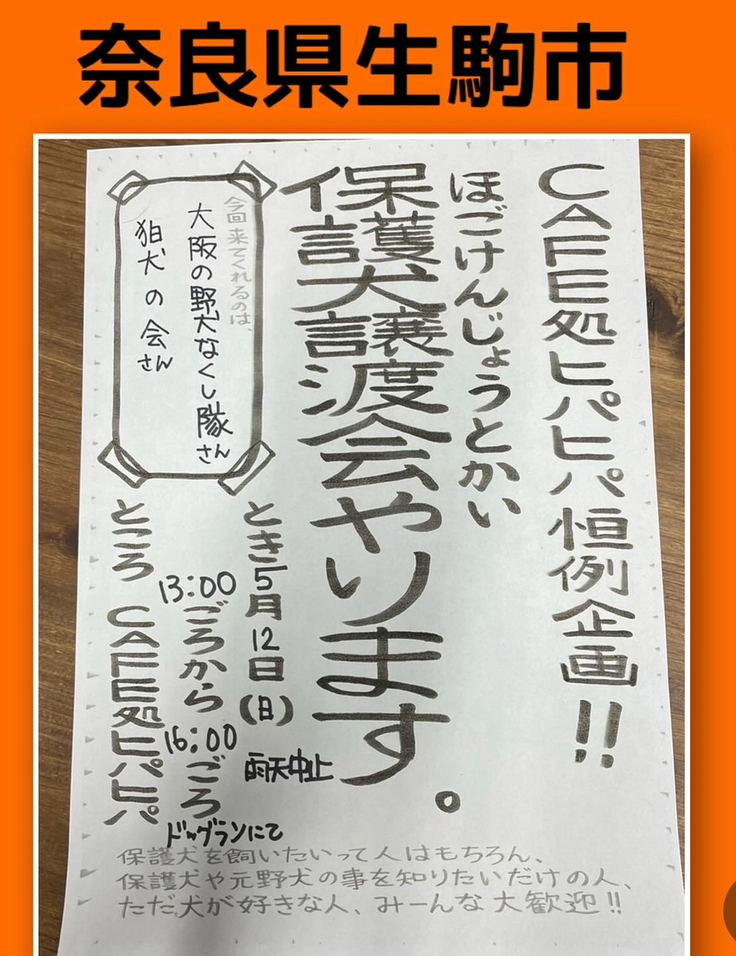 奈良県生駒市
CAFE処ヒパヒパ恒例企画!!
ほごけんじょうとかい
保護犬譲渡会やります。
今回来てくれるのは、
大阪の野犬なくし隊さん
狛犬の会さん
とき5月12日(日)
雨天中止
13:00ごろから16:00ごろ
ところ CAFE処ヒパヒパ
ドッグランにて
保護犬を飼いたいって人はもちろん、
保護犬や元野犬の事を知りたいだけの人、
ただ犬が好きな人、みーんな大歓迎!!